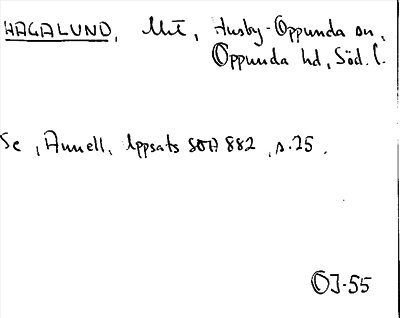 HAGALUND, Mt, Husby-Oppunda sn,
Oppunda hd, Söd. l.
Se, Annell, Uppsats SOA 882, s. 25.
OJ-55